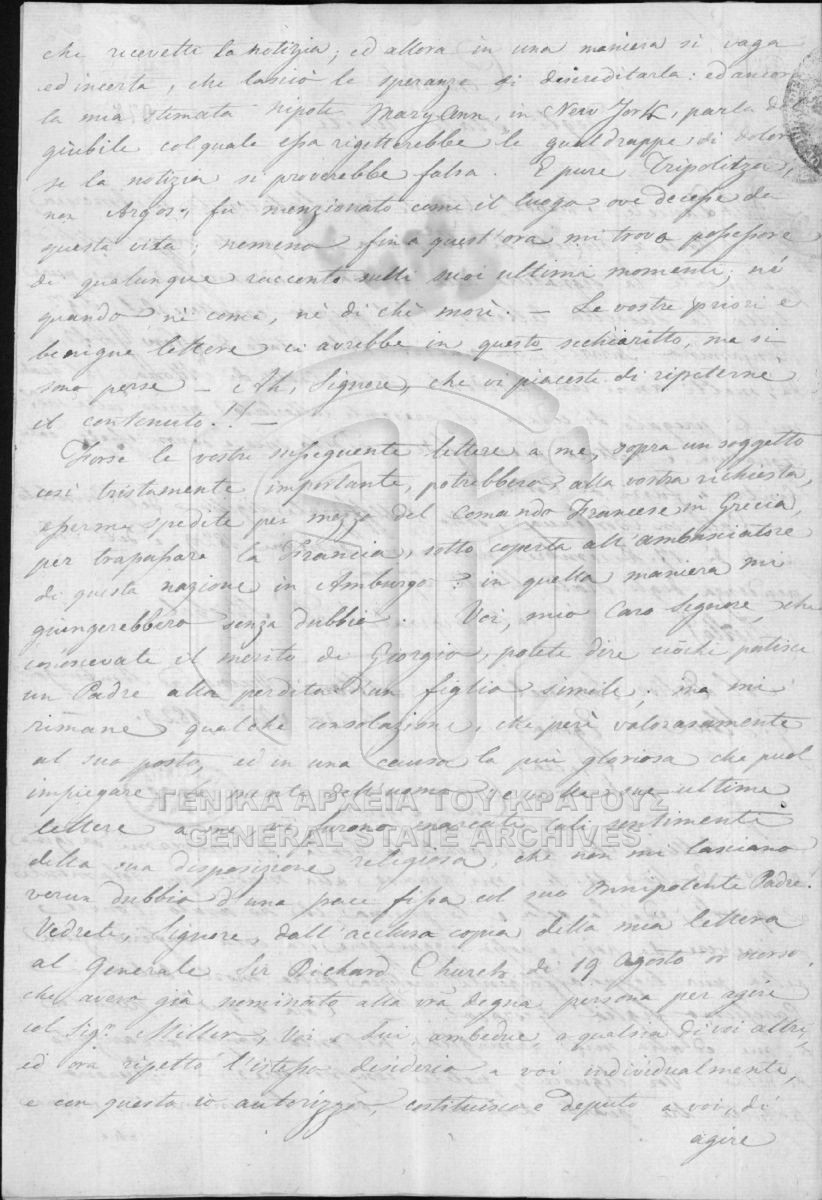 che ricevette la notizia; ed allora in una maniera si vaga
ed incerta, che lasciò le speranze di discreditarla: ed ancora
la mia stimata Nipote Mary Ann, in New York, parla del
giubile col quale essa rigetterebbe le gualdrappe di dolore
se la notizia si proverebbe falsa. E pure Tripolitza,
non Argos, fu menzionato come il luogo ove decesse da
questa vita; nemeno fin a quest'ora mi trovo possessore
di qualunque racconto sulli suoi ultimi momenti; né
quando nè come, nè di chè morì. — Le vostre priori e
benigne lettere ci avrebbe in questo schiaritto, ma si
sono perse — Ah, Signore, che vi piaceste di ripeterne
il contenuto!! —
Forse le vostre susseguente lettere a me, sopra un soggetto
così tristamente importante, potrebbero, alla vostra richiesta,
esserme spedite per mezzo del comando Francese in Grecia,
per trapassare la Francia, sotto coperta all'ambasciatore
di questa nazione in Amburgo? in quella maniera mi
giungerebbero senza dubbio. Voi, mio Caro Signore, che
conoscevate il merito di Giorgio, potete dire cioche patisce
un Padre alla perdita d'un figlio simile; ma mi
rimane qualche consolazione, che perì valorosamente
al suo posto, ed in una causa la più gloriosa che puol
impiegare la mente dell'uomo; e nelle sue ultime
lettere a me vi furono marcati tali sentimenti
della sua disposizione religiosa, che non mi lasciano
verun dubbio d'una pace fissa col suo Onnipotente Padre.
Vedrete, Signore, dall'acclusa copia della mia lettera
al Generale Sir Richard Church di 19 Agosto or scorso.
che avero già nominato alla vrā degna persona per agire
col Sigr. Miller, Voi e Lui, ambedue, o qualsia di voi altri,
ed ora ripetto l'istesso desiderio a voi individualmente,
e con questa io autorizzo, costituisco e deputo a voi, di
agire
ΓΕΝΙΚΑ ΑΡΧΕΙΑ ΤΟΥ ΚΡΑΤΟΥΣ
GENERAL STATE ARCHIVES